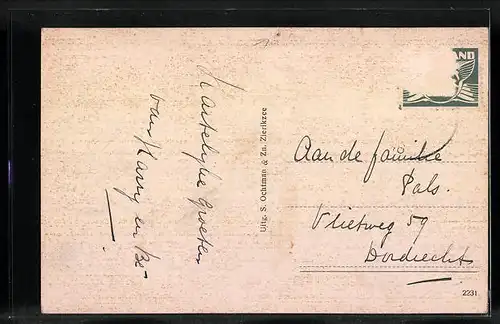 Hartelijke Groeten
van Harry en Bé
Uitg. S. Ochtman & Zn. Zierikzee
LAND
Aan de familie
Pals.
Vlietweg 59
Dordrecht
2231